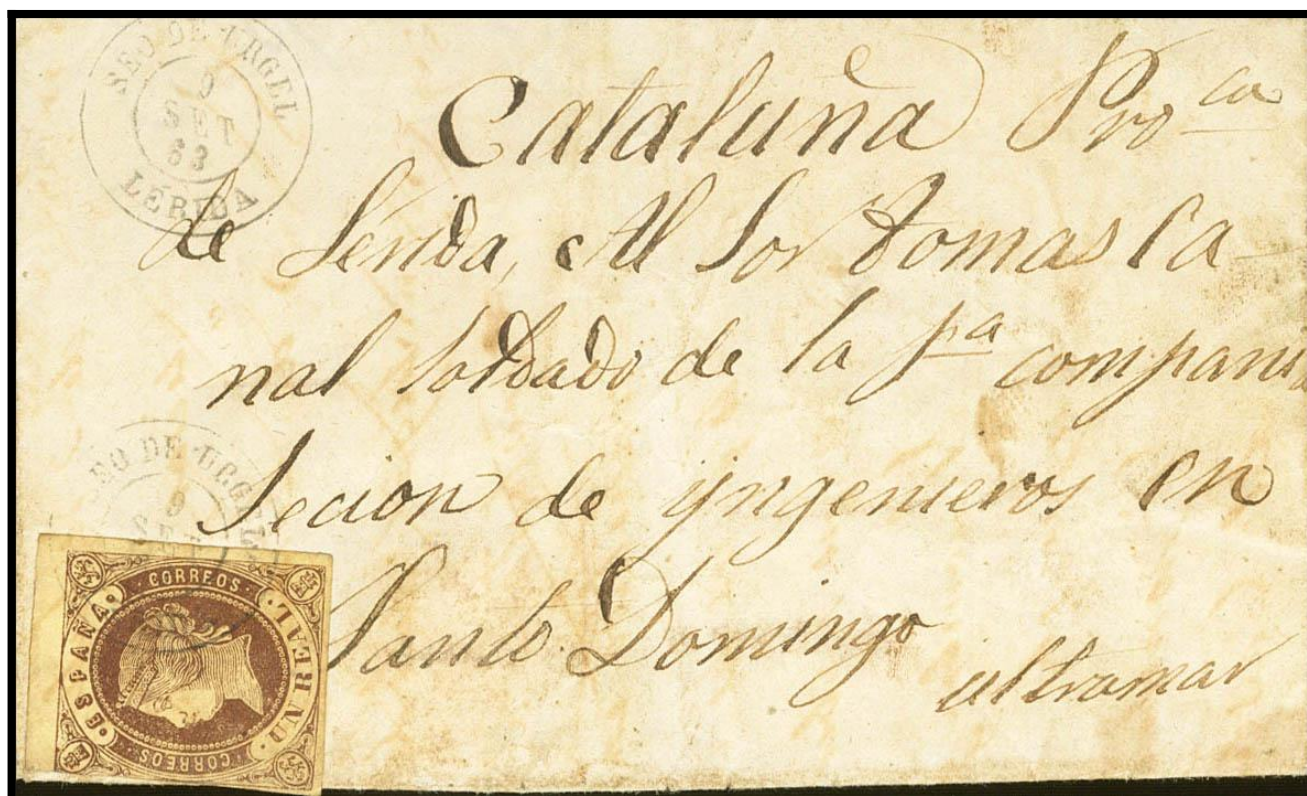 SEO DE URGEL
9
SET
63
LÉRIDA
Cataluña Pro^ca
de Lerida, Al Sor Tomas Ca-
nal soldado de la p^a compania
Secion de yngenieros en
Santo Domingo
ultramar
SEO DE URGEL
9
SET
CORREOS
ESPAÑA
UN REAL
CORREOS